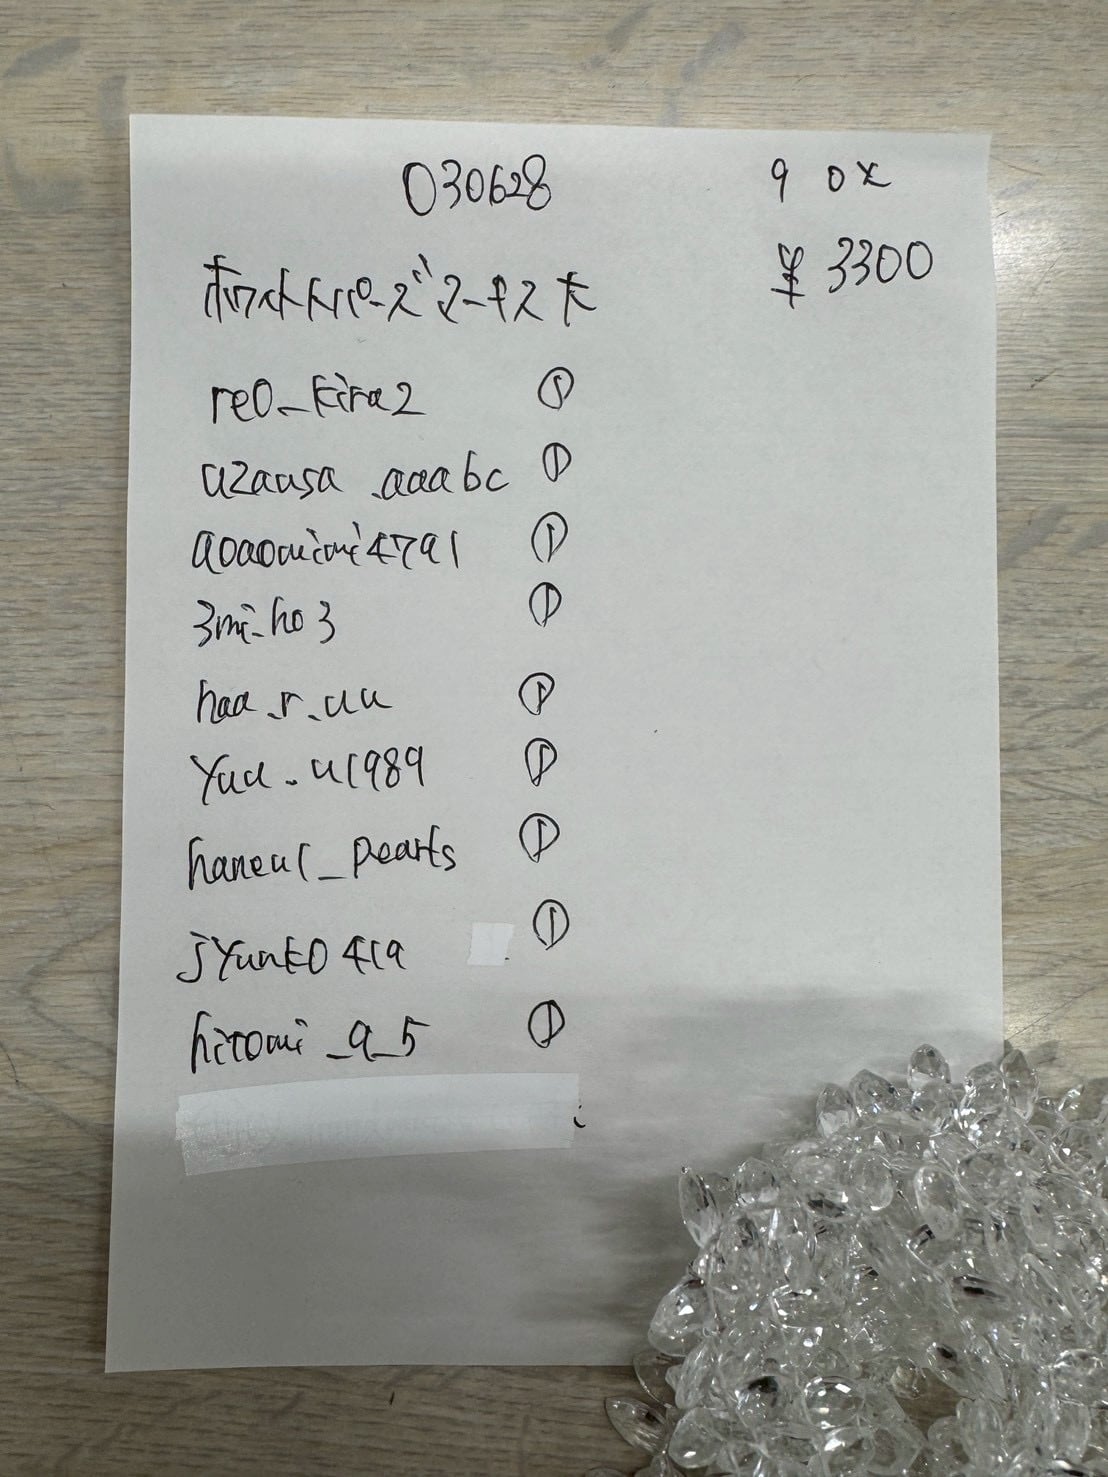 030628
9 0x
¥3300
ホワイトトパーズマーキス大
re0_kira2 ①
uzausa_aaabc ①
aoaomimi4791 ①
3mi_ho3 ①
haa_r_uu ①
yuu_u1989 ①
haneul_pearls ①
jyunko419 ①
hitomi_a_5 ①